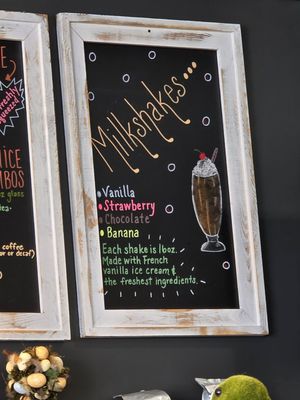 E
Freshly
Squeezed
JUICE
COMBOS
oz glass
coffee
or decaf)
Milkshakes...
Vanilla
Strawberry
Chocolate
Banana
Each shake is 16oz.
Made with French
vanilla ice cream &
the freshest ingredients.